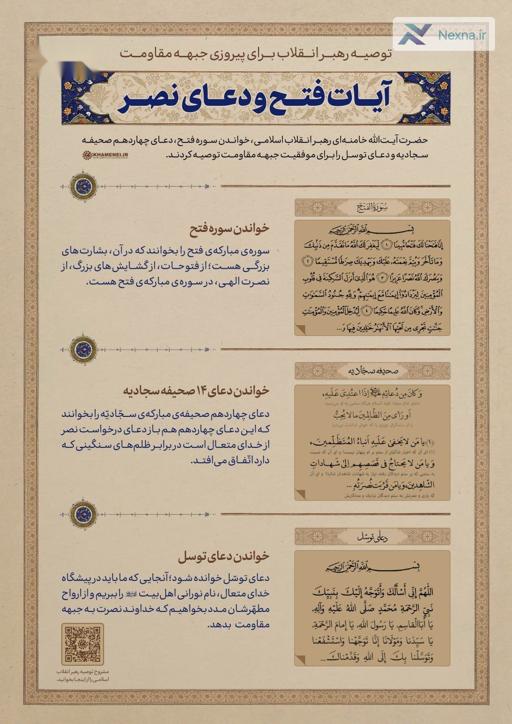 Nexna.ir
توصیه رهبر انقلاب برای پیروزی جبهه مقاومت
آیات فتح و دعای نصر
حضرت آیت‌الله خامنه‌ای رهبر انقلاب اسلامی، خواندن سوره فتح، دعای چهاردهم صحیفه
سجادیه و دعای توسل را برای موفقیت جبهه مقاومت توصیه کردند.
KHAMENEI.IR
سورة الفتح
خواندن سوره فتح
سوره‌ی مبارکه‌ی فتح را بخوانند که در آن، بشارت‌های
بزرگی هست؛ از فتوحات، از گشایش‌های بزرگ، از
نصرت الهی، در سوره‌ی مبارکه‌ی فتح هست.
بسم الله الرحمن الرحیم
إنا فتحنا لك فتحا مبینا ١ لیغفر لك الله ما تقدم من ذنبك
وما تأخر ویتم نعمته علیك ویهدیك صراطا مستقیما ٢
وینصرك الله نصرا عزیزا ٣ هو الذی أنزل السکینة فی قلوب
المؤمنین لیزدادوا إیمانا مع إیمانهم ولله جنود السموات
والأرض وکان الله علیما حکیما ٤ لیدخل المؤمنین والمؤمنات
جنت تجری من تحتها الأنهار خلدین فیها و...
صحیفه سجادیه
خواندن دعای ۱۴ صحیفه سجادیه
دعای چهاردهم صحیفه‌ی مبارکه‌ی سجّادیّه را بخوانند
که این دعای چهاردهم هم باز دعای درخواست نصر
از خدای متعال است در برابر ظلم‌های سنگینی که
دارد اتّفاق می‌افتد.
وَکانَ مِن دُعائِهِ إِذَا اعتُدِیَ عَلَیهِ،
أَو رَأی مِنَ الظّالِمینَ ما لا یُحِبُّ
(۱) یا مَن لا یَخفی عَلَیهِ أَنباءُ المُتَظَلِّمینَ،
وَ یا مَن لا یَحتاجُ فی قَصَصِهِم إِلی شَهاداتِ
الشّاهِدینَ، وَ یا مَن قَرُبَت نُصرَتُهُ ...
دعای توسل
خواندن دعای توسل
دعای توسّل خوانده شود؛ آنجایی که ما باید در پیشگاه
خدای متعال، نام نورانی اهل‌بیت را ببریم و از ارواح
مطهّرشان مدد بخواهیم که خداوند نصرت به جبهه
مقاومت بدهد.
بسم الله الرحمن الرحیم
اللّهُمَّ إِنّی أَسأَلُكَ وَأَتَوَجَّهُ إِلَیكَ بِنَبِیِّكَ
نَبِیِّ الرَّحمَةِ مُحَمَّدٍ صَلَّی اللّهُ عَلَیهِ وَآلِهِ.
یا أَبَاالقاسِمِ، یا رَسولَ اللّهِ، یا إِمامَ الرَّحمَةِ،
یا سَیِّدَنا وَمَولانا إِنّا تَوَجَّهنا وَاستَشفَعنا
وَتَوَسَّلنا بِكَ إِلَی اللّهِ وَقَدَّمناكَ...
مشروح توصیه رهبر انقلاب
اسلامی را از اینجا بخوانید.